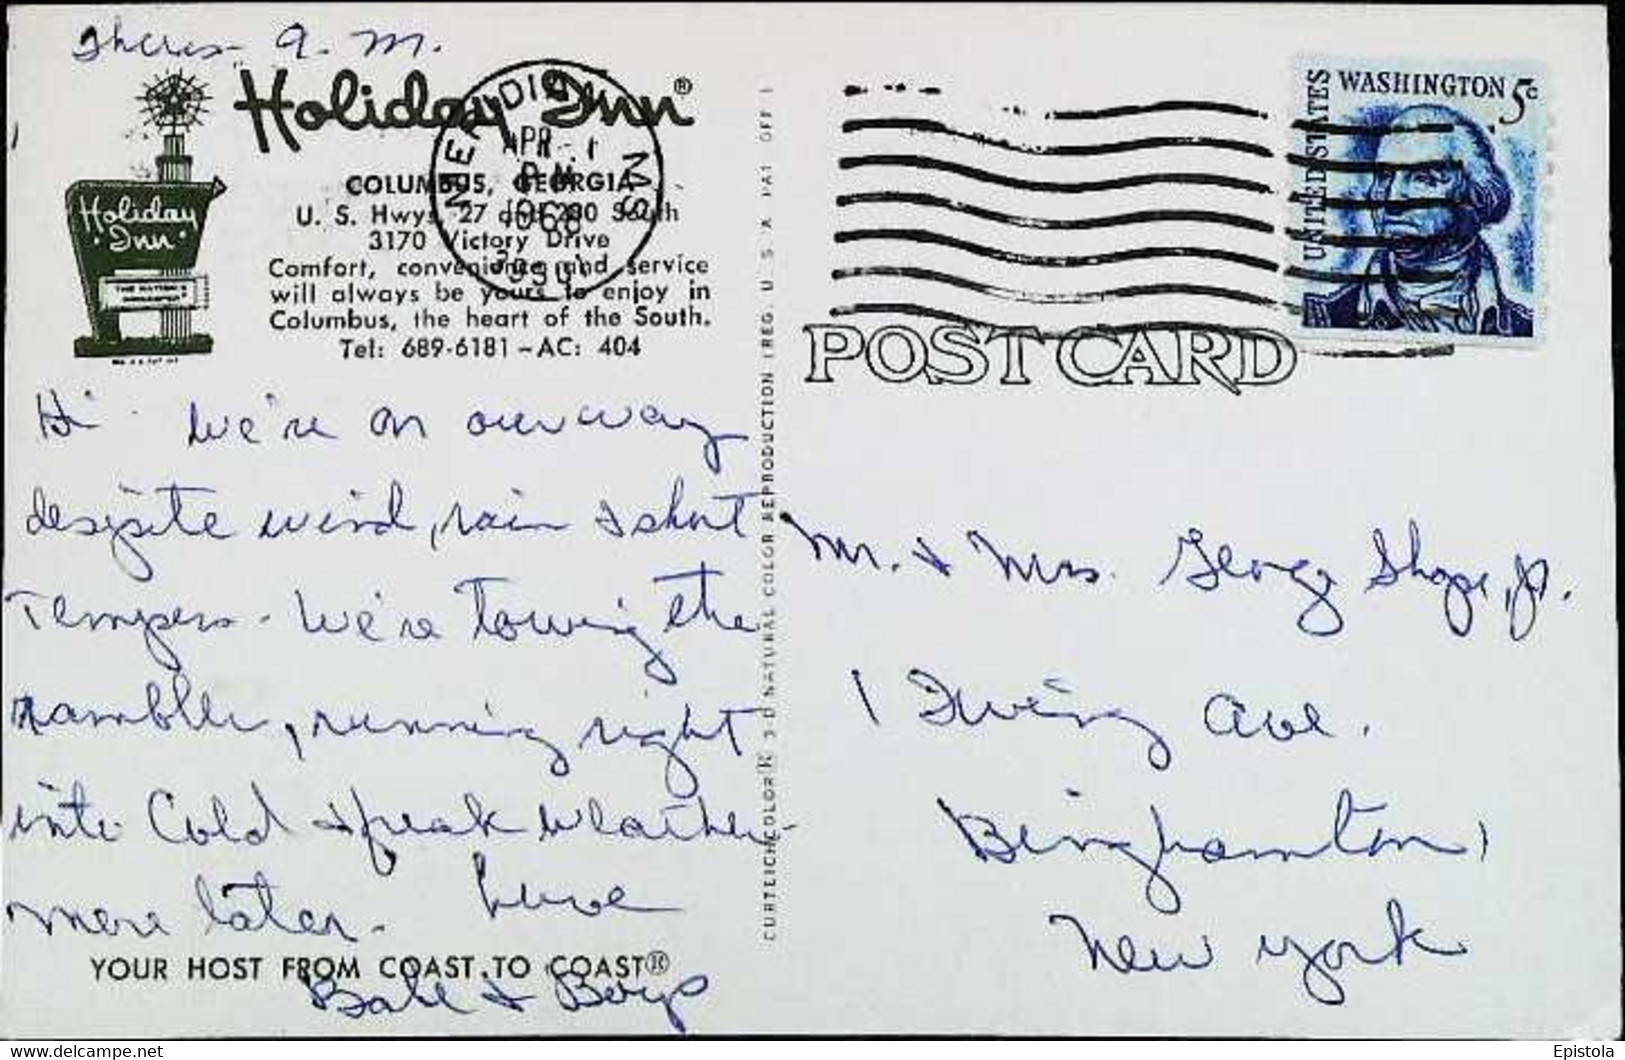 Thurs- A.M.
Holiday Inn®
Holiday
Inn
COLUMBUS, GEORGIA
U. S. Hwys. 27 and 280 South
3170 Victory Drive
Comfort, convenience and service
will always be yours to enjoy in
Columbus, the heart of the South.
Tel: 689-6181 - AC: 404
MERIDIAN
APR 1
PM
1968
MS
393
Hi - We're on our way
despite wind, rain & short
tempers - We're towing the
rambler, running right
into cold & freak weather -
more later - Love
YOUR HOST FROM COAST TO COAST®
& Boys
CURTEICHCOLOR® 3-D NATURAL COLOR REPRODUCTION (REG. U. S. A. PAT. OFF.)
UNITED STATES
WASHINGTON 5c
POST CARD
Mr. & Mrs. George Shope, Jr.
1 Irving Ave.
Binghamton,
New York
delcampe.net
Epistola